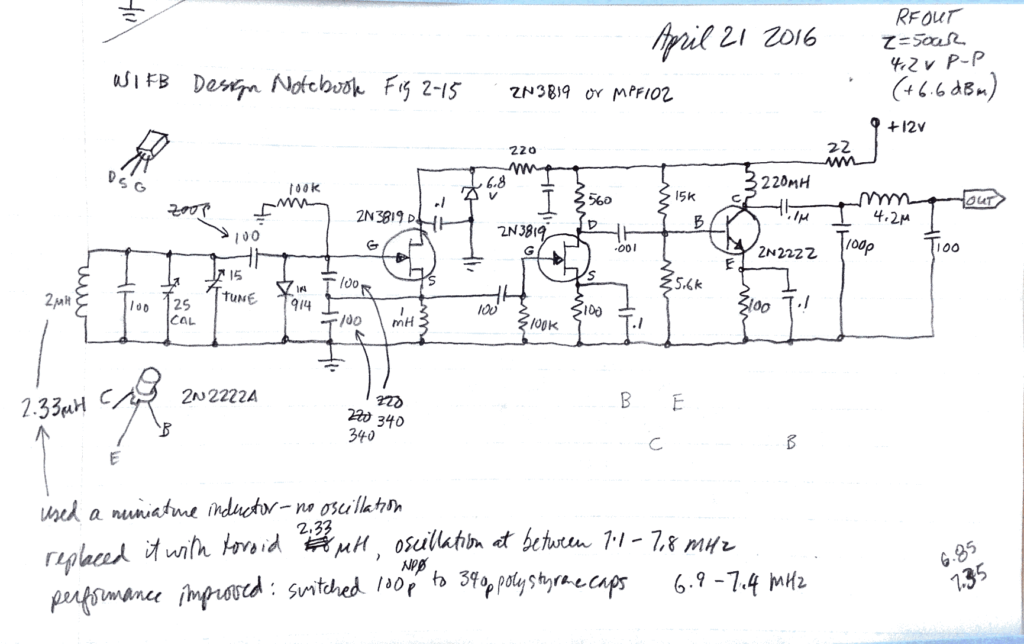 April 21 2016
RFOUT
Z=500Ω
4.2v P-P
(+6.6dBm)
W1FB Design Notebook Fig 2-15
2N3819 or MPF102
+12V
D S G
220
22
100K
6.8
V
560
15K
220MH
C
OUT
200p
100
2N3819 D
.1
2N3819
D
B
.1M
4.2M
G
G
.001
2N2222
100p
100
S
S
E
2MH
100
25
CAL
15
TUNE
IN
914
100
100
1
mH
100
100K
100
.1
5.6K
100
.1
2.33MH
C
2N2222A
B
E
220
340
220
340
B E
C B
used a miniature inductor - no oscillation
replaced it with toroid 2.33 MH, oscillation at between 7.1 - 7.8 MHz
performance improved: switched 100p NPØ to 340p polystyrene caps 6.9 - 7.4 MHz
6.85
7.35